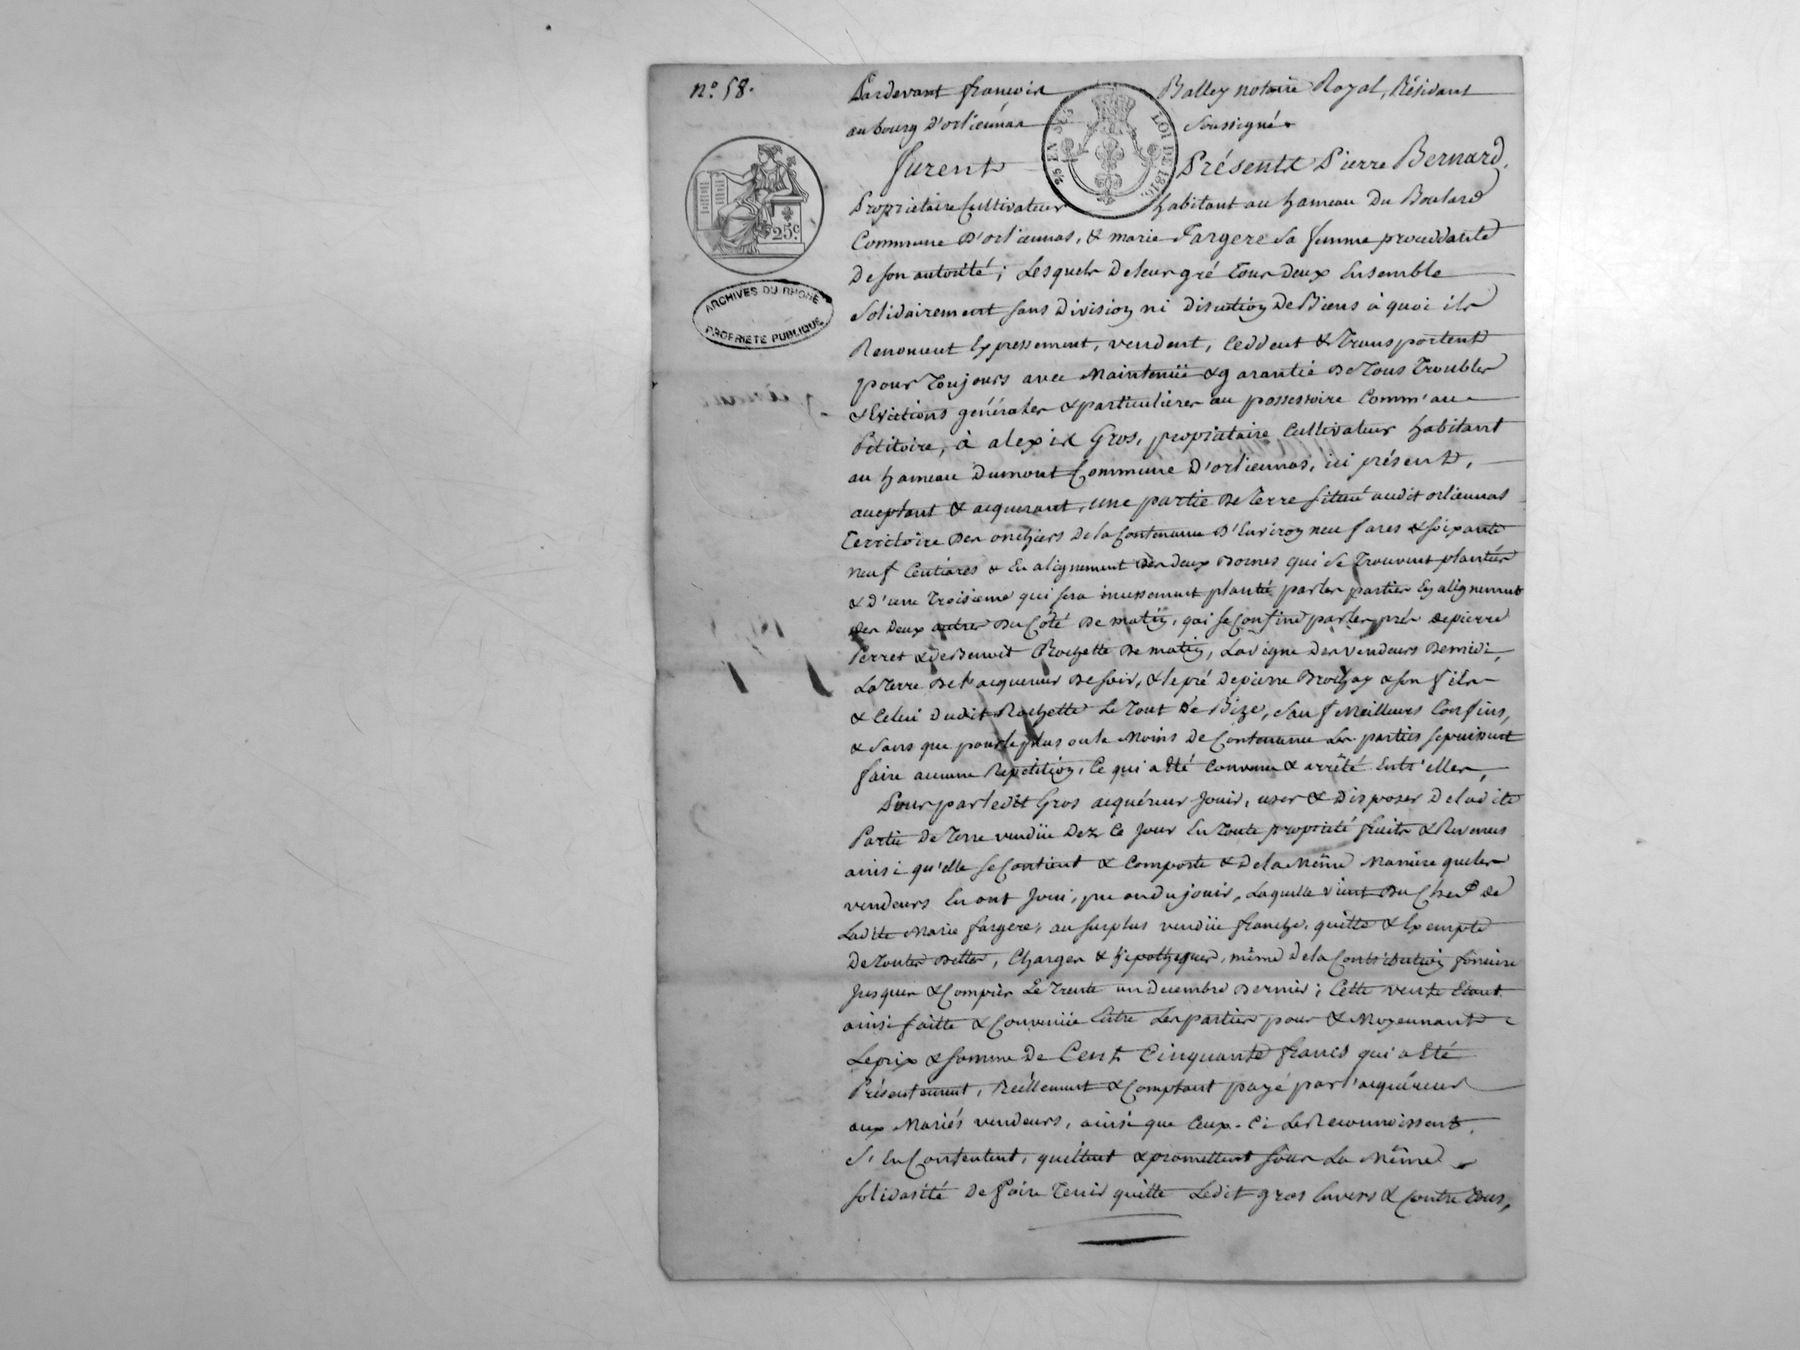 n.° 58.
Pardevant françois Balley notaire Royal, Résidant
au bourg d'orliennas soussigné.
furent Présents Pierre Bernard,
Propriétaire Cultivateur habitant au hameau Du Boulard
Commune D'orliennas, & marie fargere sa femme proceddante
De son autorité; Lesquels De leur gré Tous Deux Ensemble
solidairement sans Division ni Discution De Biens à quoi ils
Renoncent Expressement, vendent, Ceddent & Transportent
pour Toujours avec Maintenüe & garantie De Tous Troubles
& Evictions générales & particulieres au possessoire Comm'au
Petitoire, à alexis Gros, propriétaire Cultivateur habitant
au hameau Dumont Commune D'orliennas, ici présent,
acceptant & acquerant, une partie De Terre située audit orliennas
Territoire Des onchers De la Contenance D'Environ neuf ares & soixante
neuf Centiares & En alignement Des Deux Bornes qui se Trouvent plantées
& D'une Troisieme qui sera incessement planté par les parties En alignement
Des Deux autres Du Côté De matin, qui se Confine par les prés De pierre
Perret & De Benoit Rochette De matin, La vigne Des vendeurs De midi,
La Terre De l'acquereur De soir, & le pré De pierre Brochay & son fils
& Celui Dudit Rochette Le Tout De Bize, sauf Meilleurs Confins,
& sans que pour le plus ou le Moins De Contenance Les parties se puissent
faire aucune Repetition, Ce qui a Eté Convenu & arrêté Entr'elles,
Pour par ledit Gros acquéreur Jouir, user & Disposer De ladite
Partie De Terre vendüe Dez Ce Jour En Toute propriété fruits & Revenus
ainsi qu'elle se Contient & Comporte & De la Même Manière que les
vendeurs En ont Joui, pu ou du jouir, Laquelle vient Du Chef De
Ladite Marie fargere, au surplus vendüe franche, quitte & Exempte
De Toutes Dettes, Charges & hipotheques, même De la Contribution fonciere
Jusques & Compris Le Trente un Decembre Dernier; Cette vente Etant
ainsi faitte & Convenüe Entre Les parties pour & Moyennant
Le prix & somme De Cent Cinquante francs qui a Eté
Présentement, Réellement & Comptant payé par l'acquéreur
aux Mariés vendeurs, ainsi que Ceux-Ci Le Reconnoissent,
s'En Contentent, quittent & promettent sous La Même
solidarité De faire Tenir quitte Ledit gros Envers & Contre Tous,
25 EN SUS
LOI DE 1816.
25c
ARCHIVES DU RHONE
PROPRIETE PUBLIQUE